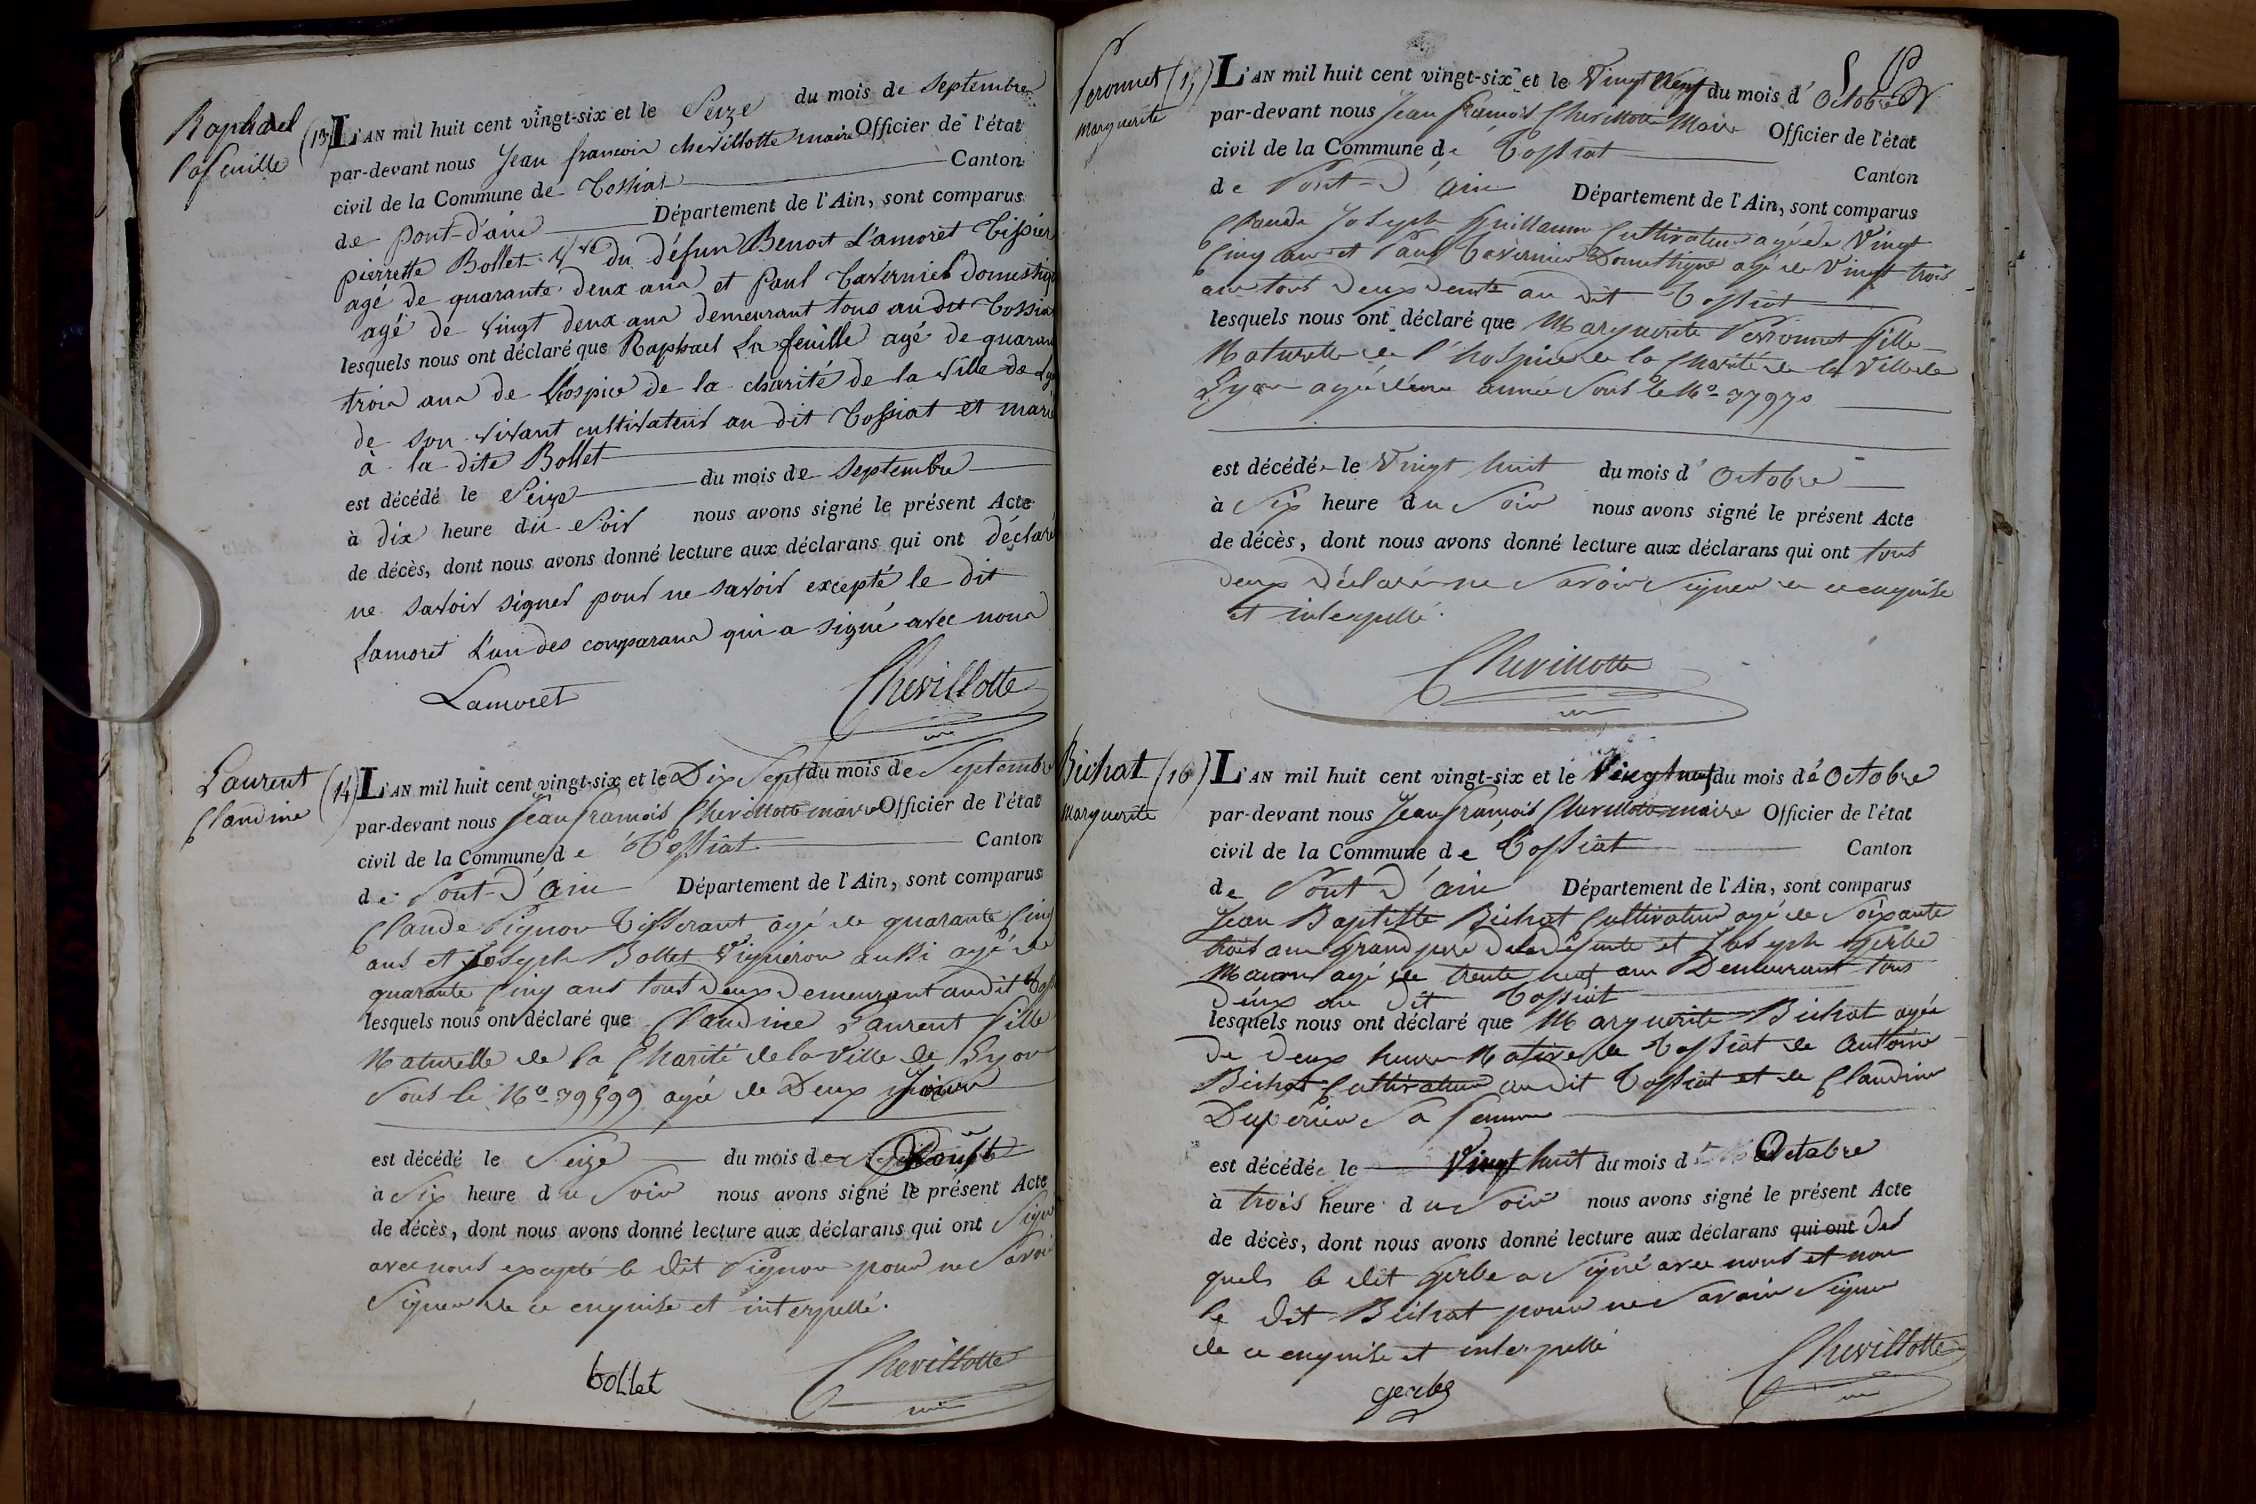 Raphael
Lafeuille
(13) L'AN mil huit cent vingt-six et le Seize du mois de Septembre
par-devant nous Jean francois chevillotte maire Officier de l'état
civil de la Commune de Tossiat Canton
de pont-d'ain Département de l'Ain, sont comparus
pierrette Bollet Vve du défun Benoit Lamoret Tissier
agé de quarante deux ans et Paul Tavernier domestiq
agé de vingt deux ans demeurant tous au dit Tossia
lesquels nous ont déclaré que Raphael La feuille agé de quaran
trois ans de l'hospice de la charité de la ville de Ly
de son vivant cultivateur au dit Tossiat et mari
à la dite Bollet
est décédé le Seize du mois de Septembre
à dix heure du Soir nous avons signé le présent Acte
de décès, dont nous avons donné lecture aux déclarans qui ont déclaré
ne savoir signer pour ne savoir excepté le dit
Lamoret L'un des comparans qui a signé avec nous
Lamoret Chevillotte
Laurent
Claudine
(14) L'AN mil huit cent vingt-six et le Dix Sept du mois de Septembre
par-devant nous Jean francois Chevillotte maire Officier de l'état
civil de la Commune de Tossiat Canton
de Pont-d'ain Département de l'Ain, sont comparus
Claude Pignon Tisserant agé de quarante Cinq
ans et Joseph Bollet Vigneron aussi agé de
quarante Cinq ans tous deux demeurant audit Toss
lesquels nous ont déclaré que Claudine Laurent fille
Naturelle de la Charité de la Ville de Lyon
Sous le No 39599 agée de Deux
est décédé le Seize du mois de
à Six heure du Soir nous avons signé le présent Acte
de décès, dont nous avons donné lecture aux déclarans qui ont Signé
avec nous excepté le dit Pignon pour ne Savoir
Signer de ce enquise et interpellé.
bollet Chevillotte
Peronnet
Marguerite
(15) L'AN mil huit cent vingt-six et le Vingt Neuf du mois d'Octobre
par-devant nous Jean francois Chevillotte Maire Officier de l'état
civil de la Commune de Tossiat Canton
de Pont-d'ain Département de l'Ain, sont comparus
Claude Joseph Guillaume Cultivateur agé de Vingt
Cinq ans et Paul Tavernier Domestique agé de Vingt trois
ans tous deux au dit Tossiat
lesquels nous ont déclaré que Marguerite Perronnet fille
Naturelle de l'hospice de la Charité de la Ville de
Lyon agée d'une année Sous le No 37970
est décédée le Vingt huit du mois d'Octobre
à Six heure du Soir nous avons signé le présent Acte
de décès, dont nous avons donné lecture aux déclarans qui ont tous
deux déclaré ne Savoir Signer de ce enquise
et interpellé.
Chevillotte
Bichat
Marguerite
(16) L'AN mil huit cent vingt-six et le Vingt neuf du mois d'Octobre
par-devant nous Jean françois Chevillotte maire Officier de l'état
civil de la Commune de Tossiat Canton
de Pont d'ain Département de l'Ain, sont comparus
Jean Baptiste Bichat Cultivateur agé de Soixante
trois ans Grand pere de la défunte et Joseph Gerbe
Maçon agé de trente huit ans Demeurant tous
deux au dit Tossiat
lesquels nous ont déclaré que Marguerite Bichat agée
de deux heures Native de Tossiat de Antoine
Bichat Cultivateur au dit Tossiat et de Claudine
Duperier Sa femme
est décédée le Vingt huit du mois d Octobre
à trois heure du Soir nous avons signé le présent Acte
de décès, dont nous avons donné lecture aux déclarans qui ont des
quels le dit Gerbe a Signé avec nous et non
le dit Bichat pour ne Savoir Signer
de ce enquise et interpellé
gerbe Chevillotte